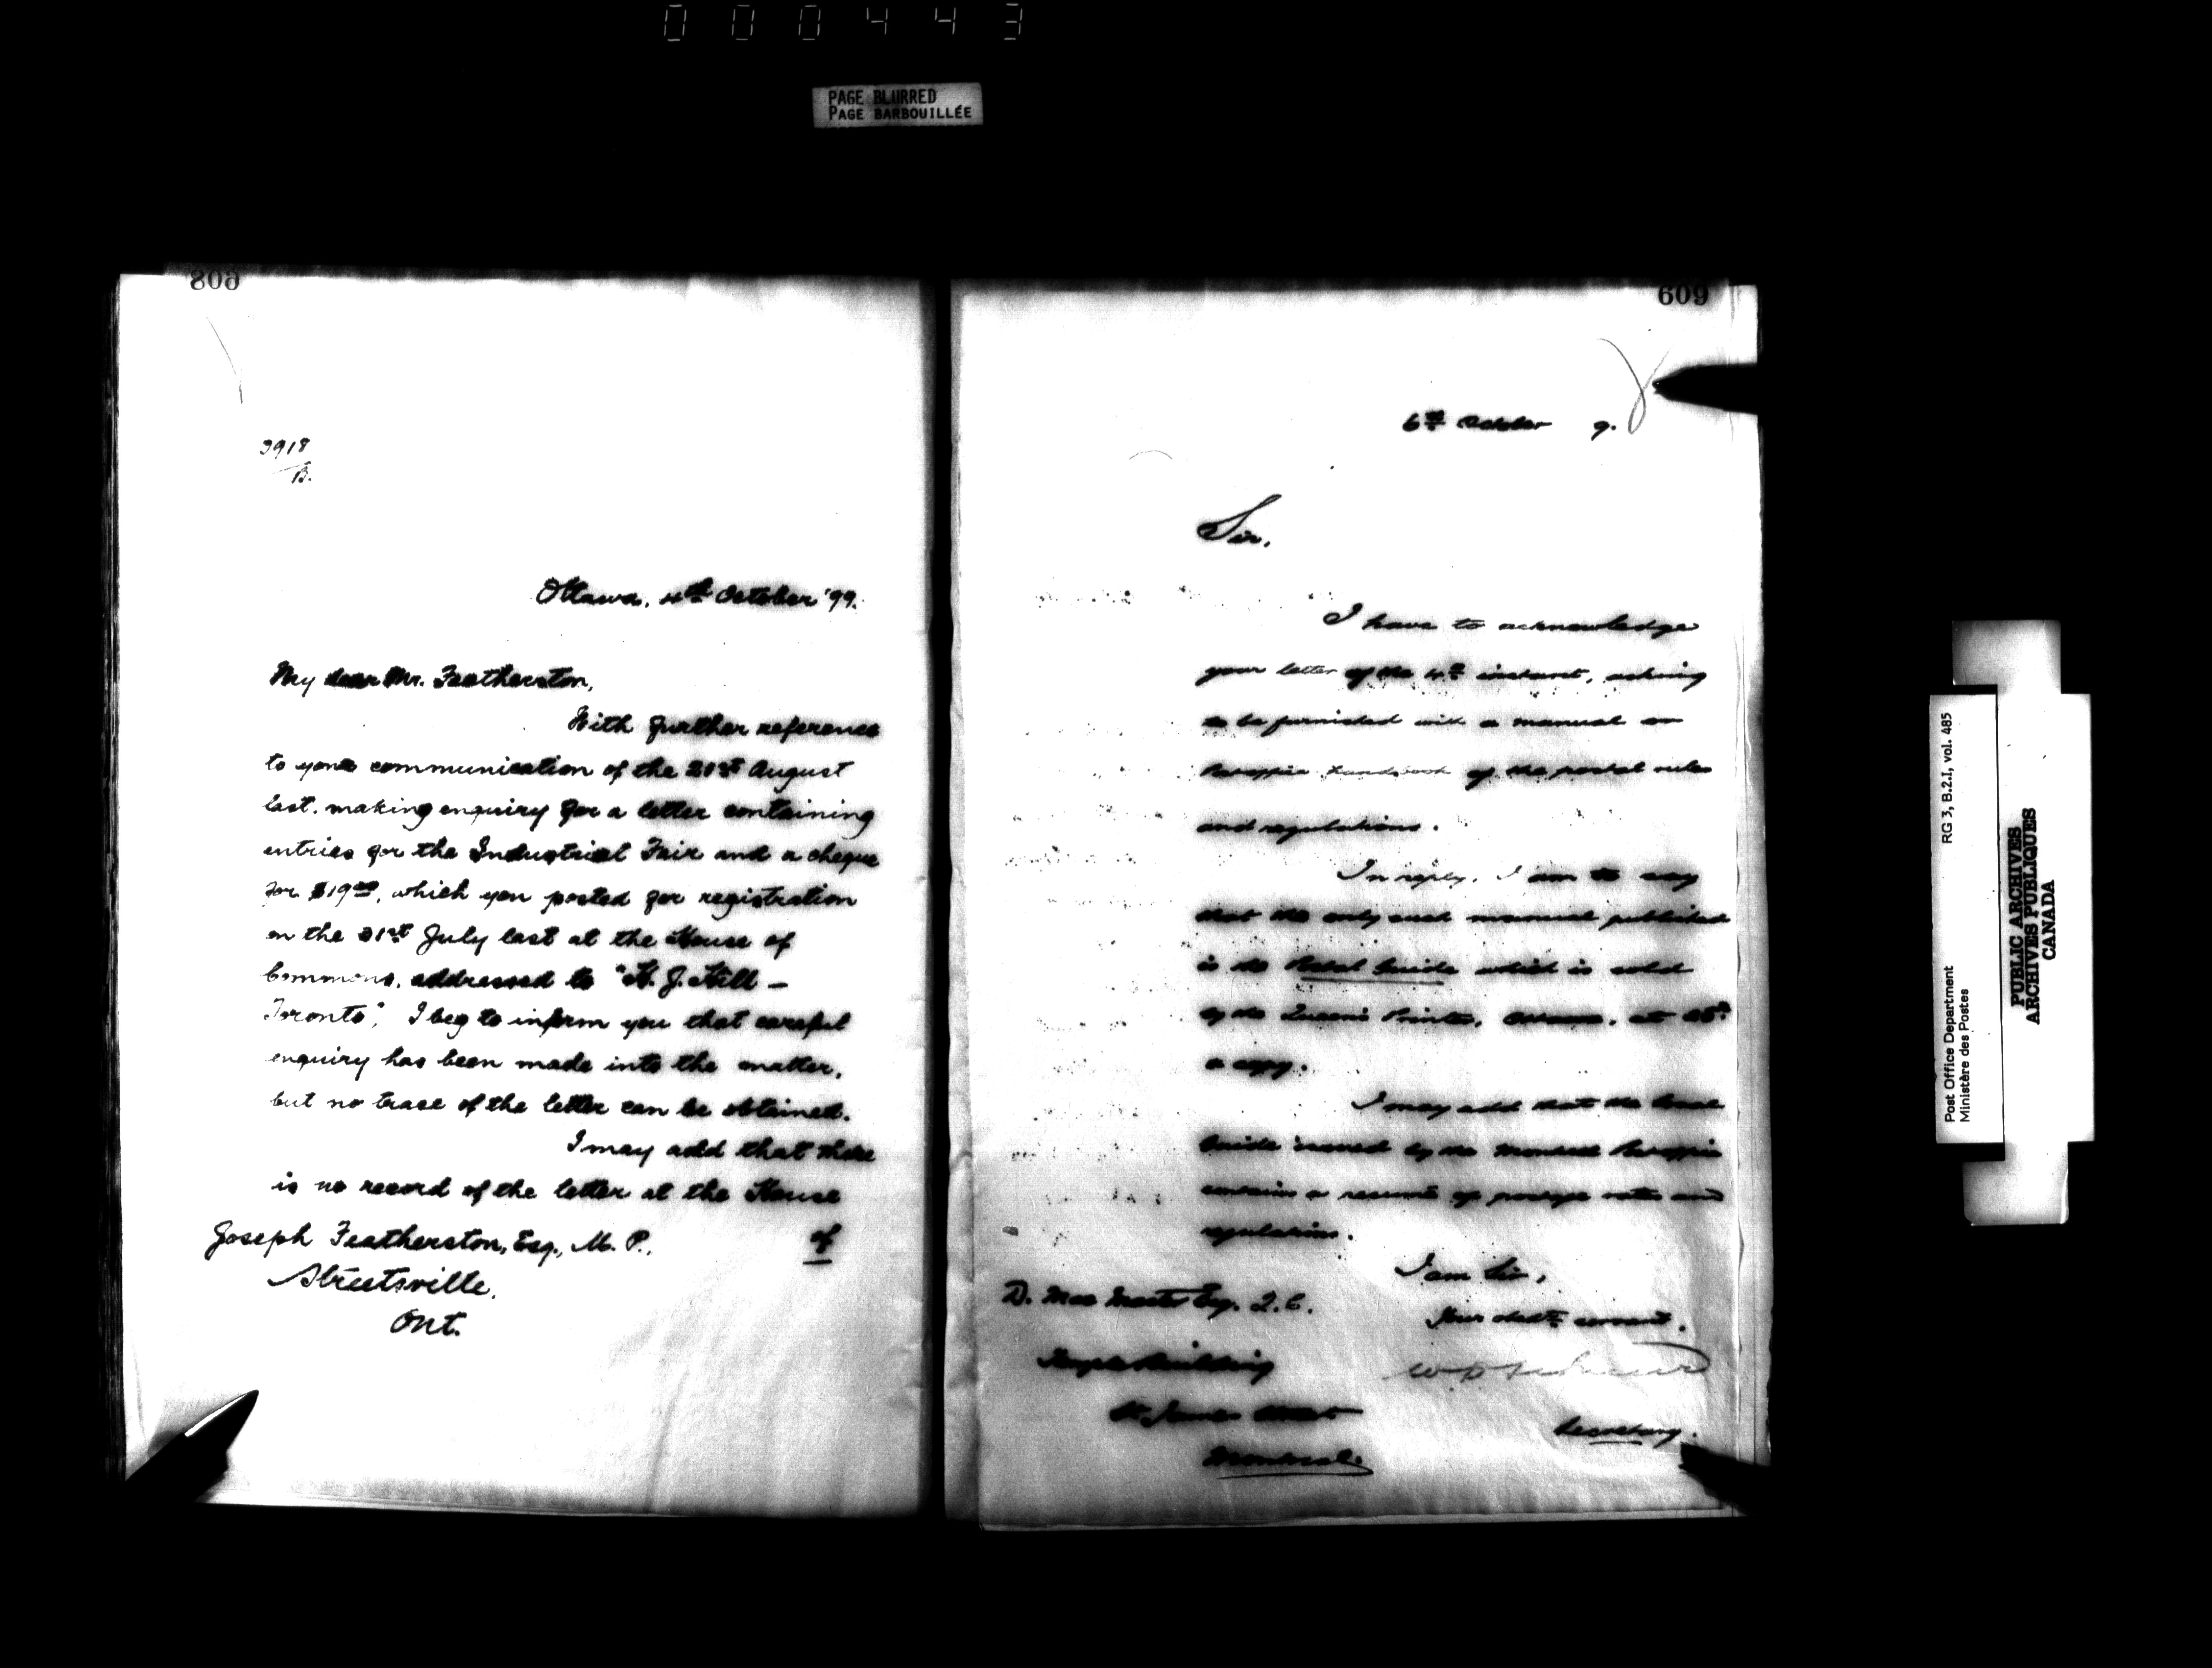 000443
PAGE BLURRED
PAGE BARBOUILLÉE
608
3918
B.
Ottawa, 4th October '99.
My dear Mr. Featherston,
With further reference
to your communication of the 21st August
last, making enquiry for a letter containing
entries for the Industrial Fair and a cheque
for $19.00, which you posted for registration
on the 31st July last at the House of
Commons, addressed to "H. J. Hill –
Toronto", I beg to inform you that careful
enquiry has been made into the matter,
but no trace of the letter can be obtained.
I may add that there
is no record of the letter at the House
of
Joseph Featherston, Esq., M. P.,
Streetsville.
Ont.
609
6th October 9.
Sir,
I have to acknowledge
your letter of the 4th instant, asking
to be furnished with a manual or
handbook of the postal rules
and regulations.
In reply, I am to say
that the only such manual published
is the Postal Guide which is sold
by the Queen's Printer, Ottawa, at
a copy.
I may add that the local
Guide issued by the Montreal
contains a resumé of postage rates and
regulations.
I am Sir,
Your obdt. servant.
Secretary.
D. MacMaster Esq. Q. C.
Temple Building
St. James Street
Montreal.
Post Office Department
Ministère des Postes
RG 3, B.2.I, vol. 485
PUBLIC ARCHIVES
ARCHIVES PUBLIQUES
CANADA